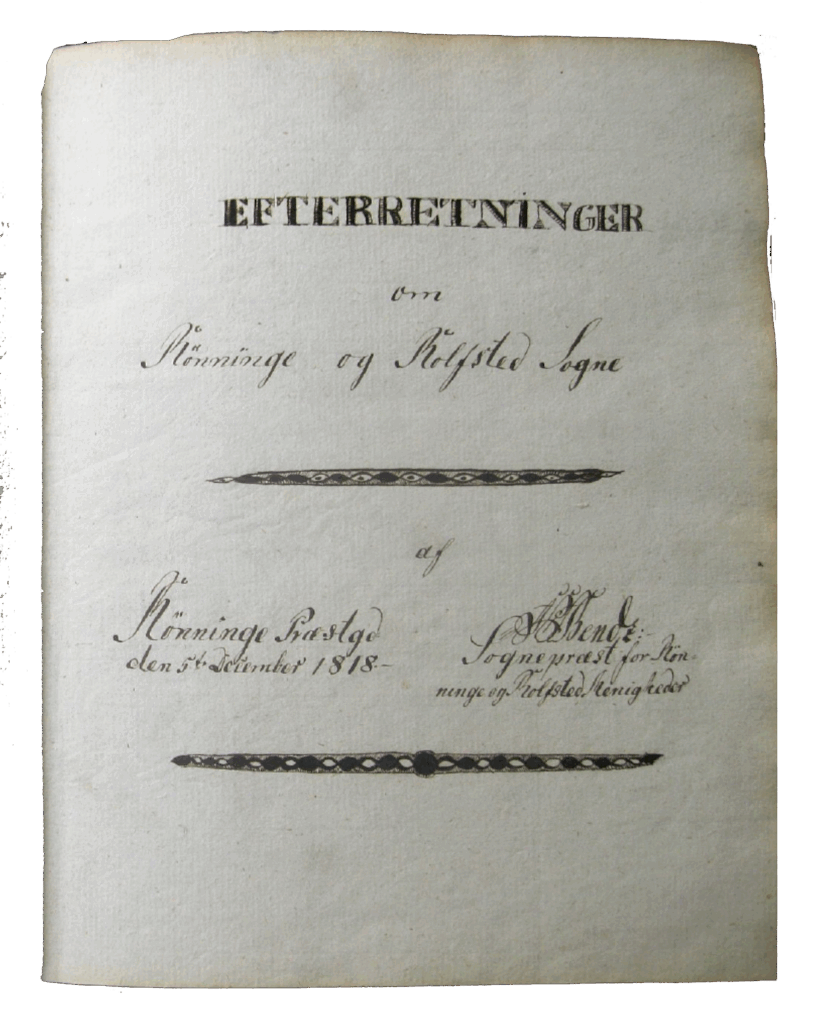 EFTERRETNINGER
om
Rönninge og Rolfsted Sogne
af
Rönninge Præstgd
den 5te December 1818.-
Bendz:
Sognepræst for Rön-
ninge og Rolfsted Menigheder